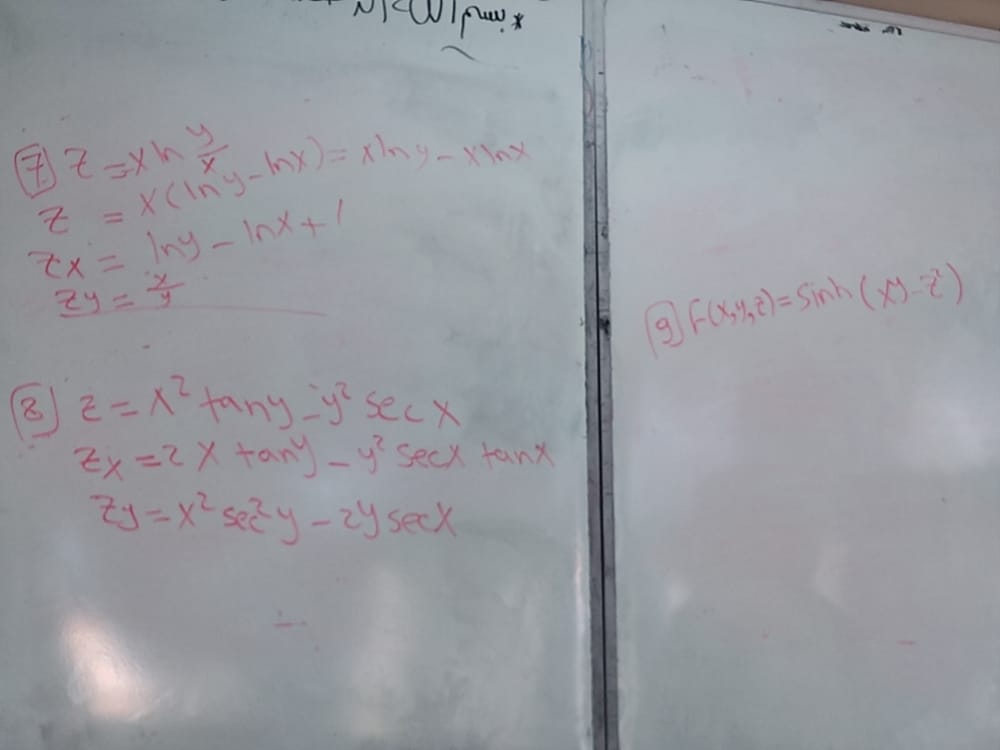 * بسم
7 z = x ln y/x
z = x(lny - lnx) = xlny - xlnx
zx = lny - lnx + 1
zy = x/y
8 z = x² tany - y² secx
zx = 2x tany - y² secx tanx
zy = x² sec²y - 2y secx
9 f(x,y,z) = Sinh (xy - z²)